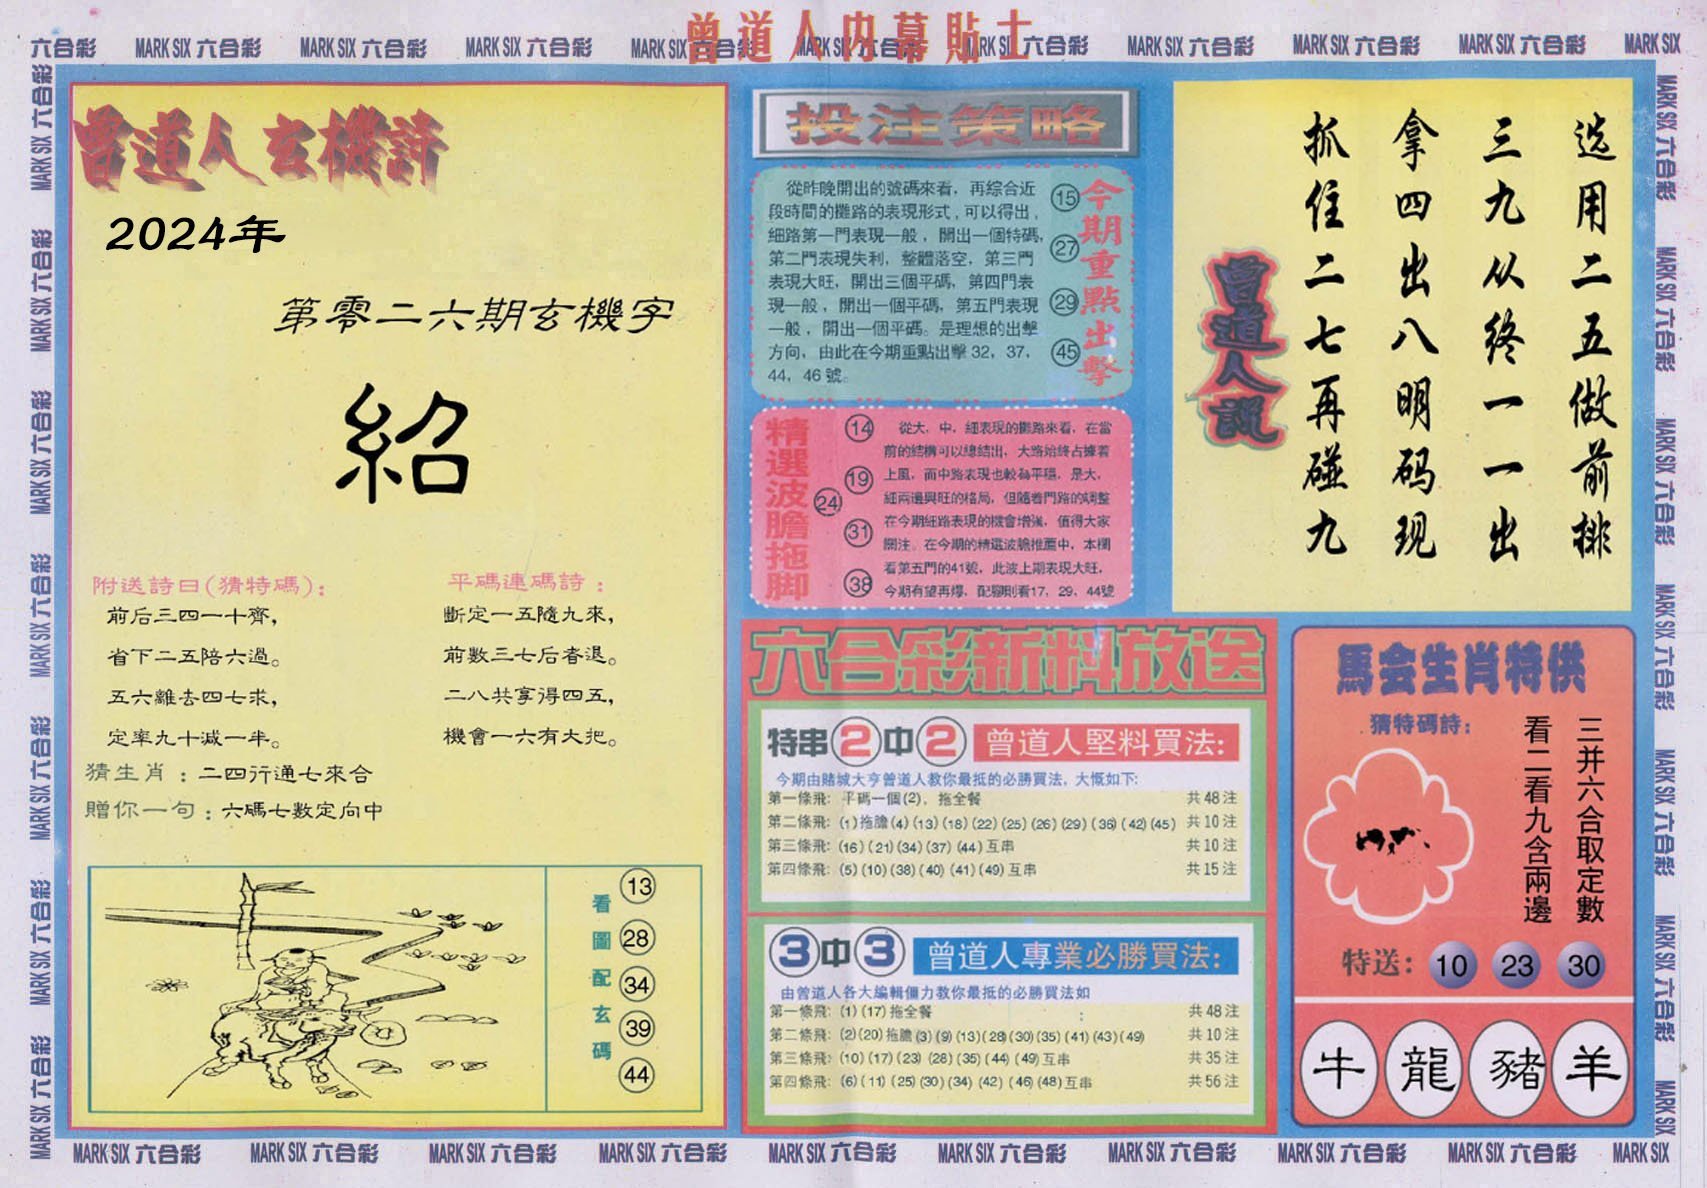 曾道人内幕貼士
六合彩 MARK SIX 六合彩 MARK SIX 六合彩 MARK SIX 六合彩 MARK SIX 六合彩 MARK SIX 六合彩 MARK SIX 六合彩 MARK SIX 六合彩 MARK SIX 六合彩 MARK SIX 六合彩 MARK SIX
曾道人玄機詩
2024年
第零二六期玄機字
紹
附送詩曰(猜特碼):
前后三四一十齊,
省下二五陪六過。
五六離去四七求,
定率九十減一半。
平碼連碼詩:
斷定一五隨九來,
前數三七后者退。
二八共享得四五,
機會一六有大把。
猜生肖:二四行通七來合
贈你一句:六碼七數定向中
看圖配玄碼
13
28
34
39
44
投注策略
從昨晚開出的號碼來看,再綜合近
段時間的攤路的表現形式,可以得出,
細路第一門表現一般,開出一個特碼,
第二門表現失利,整體落空,第三門
表現大旺,開出三個平碼,第四門表
現一般,開出一個平碼,第五門表現
一般,開出一個平碼。是理想的出擊
方向,由此在今期重點出擊32,37,
44,46號。
15
27
29
45
今期重點出擊
精選波膽拖脚
14
19
24
31
38
從大,中,細表現的攤路來看,在當
前的結構可以總結出,大路始終占據着
上風,而中路表現也較為平穩,是大,
細兩邊興旺的格局,但隨着門路的調整
在今期細路表現的機會增強,值得大家
關注。在今期的精選波膽推薦中,本欄
看第五門的41號,此波上期表現大旺,
今期有望再爆,配腳則看17,29,44號
選用二五做前排
三九从终一一出
拿四出八明码现
抓住二七再碰九
曾道人説
六合彩新料放送
特串2中2 曾道人堅料買法:
今期由賭城大亨曾道人教你最抵的必勝買法,大慨如下:
第一條飛:平碼一個(2),拖全餐 共48注
第二條飛:(1)拖膽(4)(13)(18)(22)(25)(26)(29)(36)(42)(45) 共10注
第三條飛:(16)(21)(34)(37)(44)互串 共10注
第四條飛:(5)(10)(38)(40)(41)(49)互串 共15注
3中3 曾道人專業必勝買法:
由曾道人各大編輯僵力教你最抵的必勝買法如
第一條飛:(1)(17)拖全餐 共48注
第二條飛:(2)(20)拖膽(3)(9)(13)(28)(30)(35)(41)(43)(49) 共10注
第三條飛:(10)(17)(23)(28)(35)(44)(49)互串 共35注
第四條飛:(6)(11)(25)(30)(34)(42)(46)(48)互串 共56注
馬会生肖特供
猜特碼詩:
三并六合取定數
看二看九含兩邊
特送: 10 23 30
牛 龍 豬 羊
MARK SIX 六合彩 MARK SIX 六合彩 MARK SIX 六合彩 MARK SIX 六合彩 MARK SIX 六合彩 MARK SIX 六合彩 MARK SIX 六合彩 MARK SIX 六合彩 MARK SIX 六合彩 MARK SIX